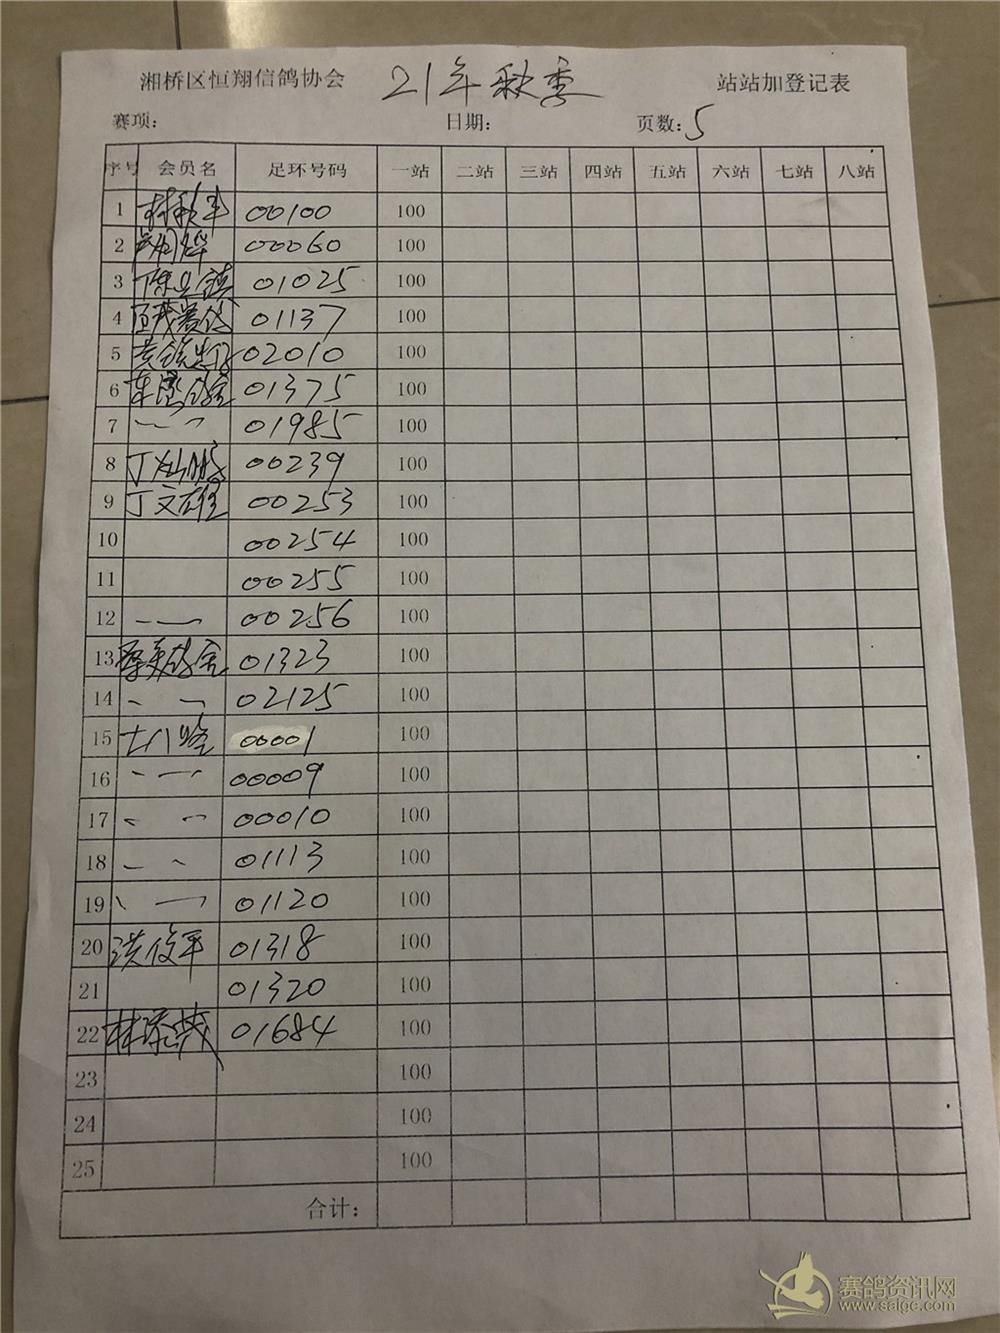 湘桥区恒翔信鸽协会 21年秋季 站站加登记表
赛项: 日期: 页数: 5
序号 会员名 足环号码 一站 二站 三站 四站 五站 六站 七站 八站
1 00100 100
2 00060 100
3 01025 100
4 01137 100
5 02010 100
6 01375 100
7 01985 100
8 丁 00239 100
9 丁文雄 00253 100
10 00254 100
11 00255 100
12 00256 100
13 01323 100
14 02125 100
15 00001 100
16 00009 100
17 00010 100
18 01113 100
19 01120 100
20 洪俊平 01318 100
21 01320 100
22 林 01684 100
23 100
24 100
25 100
合计:
赛鸽资讯网
www.saige.com